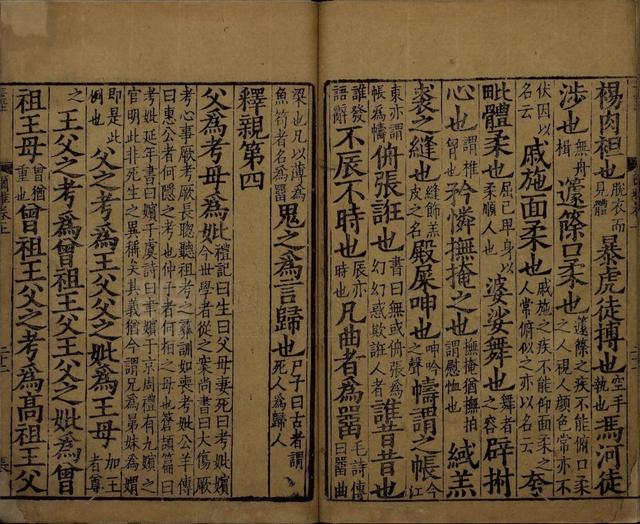 裼肉袒也脫衣而見體暴虎徒搏也空手執也馮河徒
涉也無舟楫籧篨口柔也籧篨之疾不能俯口柔之人視人顏色常亦不
伏因以名云戚施面柔也戚施之疾不能仰面柔之人常俯似之亦以名云夸
毗體柔也屈己卑身以柔順人也婆娑舞也舞者之容辟拊
心也謂椎胷也矜憐撫掩之也撫掩猶撫拍謂慰恤也緎羔
裘之縫也縫飾羔皮之名殿屎呻也呻吟之聲幬謂之帳今江
東亦謂帳爲幬侜張誑也書曰無或侜張爲幻幻惑欺誑人者誰昔昔也
誰發語辭不辰不時也辰亦時也凡曲者爲罶毛詩傳曰罶曲
梁也凡以薄爲魚笱者名爲罶鬼之爲言歸也尸子曰古者謂死人爲歸人
釋親第四
父爲考母爲妣禮記曰生曰父母妻死曰考妣嬪今世學者從之案尚書曰大傷厥
考心事厥考厥長聰聽祖考之彝訓如喪考妣公羊傳曰惠公者何隱之考也仲子者何桓之母也蒼頡篇曰
考妣延年書曰嬪于虞詩曰聿嬪于京周禮有九嬪之官明此非死生之異稱矣其義猶今謂兄爲晜妹爲媦
即是此例也父之考爲王父父之妣爲王母加王者尊
之王父之考爲曾祖王父王父之妣爲曾
祖王母曾猶重也曾祖王父之考爲高祖王父